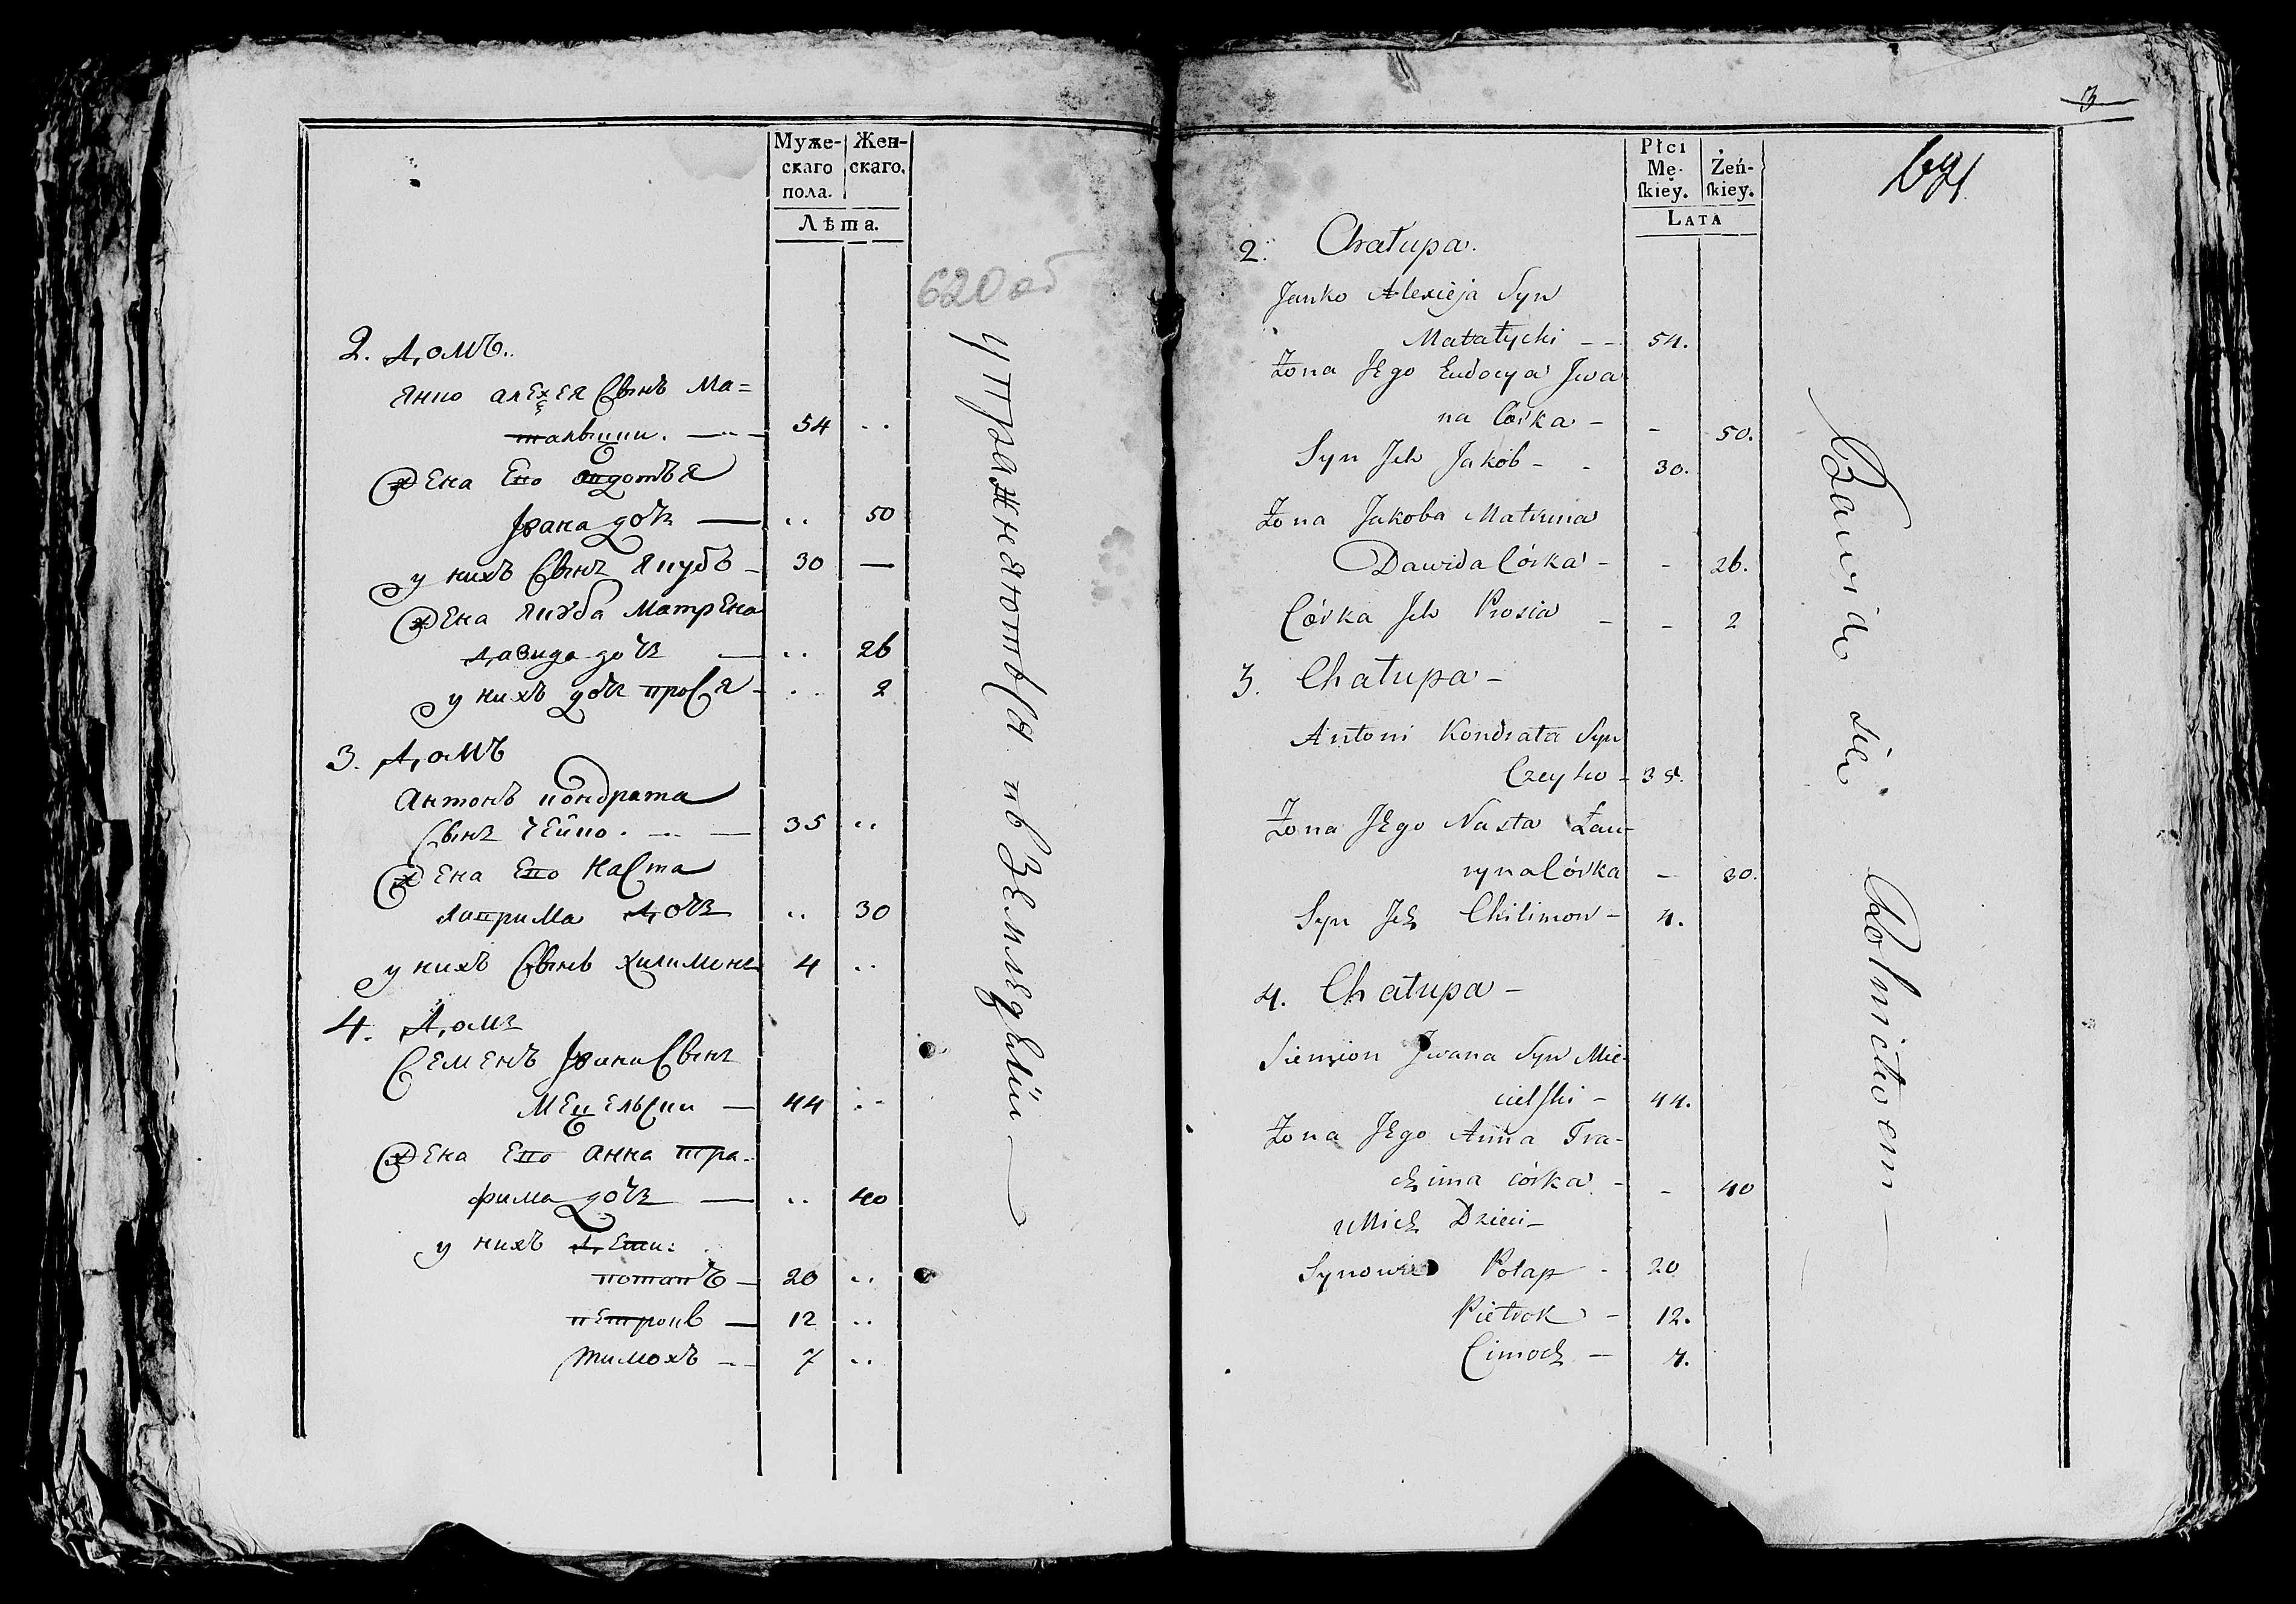 Муже-
скаго
пола.
Жен-
скаго.
Лѣта.
620 об
2. Домъ..
Янко алехея Сынъ Ма=
талыцки. — 54 ..
Жена Его авдотья
Ивана дочь — .. 50
у нихъ Сынъ Якубъ – 30 —
Жена якуба Матрена
Давида дочь — .. 26
у нихъ дочь прося – .. 2
3. Домъ
Антонъ кондрата
Сынъ Чейко. — 35 ..
Жена Его Наста
лаврима дочь .. 30
у нихъ Сынъ Хилимонъ 4 ..
4. Домъ
Семенъ Ивана Сынъ
Мецельски — 44 ..
Жена Его Анна тра-
фима дочь — .. 40
у нихъ дети:
потапъ – 20 ..
петрокъ – 12 ..
тимохъ – 7 ..
упражняются въ Земледелии
3
Płci
Mę-
ſkiey.
Żeń-
ſkiey.
LATA
2. Chałupa.
Janko Alexieja Syn
Matałycki – – 54.
Żona Jego Eudocya Jwa
na Córka – – 50.
Syn Jch Jakób – – 30.
Żona Jakoba Matruna
Dawida Córka – – 26.
Córka Jch Prosia – – 2
3. Chałupa –
Antoni Kondrata Syn
Czeyko – 35.
Żona Jego Nasta Ław-
ryna Córka – 30.
Syn Jch Chilimon – 4.
4. Chałupa –
Siemion Jwana Syn Mie-
cielſki – 44.
Żona Jego Anna Tra-
chima córka – – 40
u Nich Dzieci –
Synowie Potap – 20
Pietrok – 12.
Cimoch – 7.
Bawią się Rolnictwem